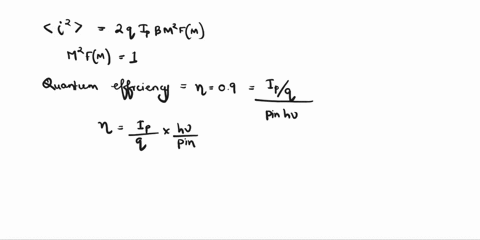 <i²> = 2q Ip B M² F(M)
M² F(M) = 1
Quantum efficiency = η = 0.9 = Ip/q / pin hυ
η = Ip/q × hυ/pin